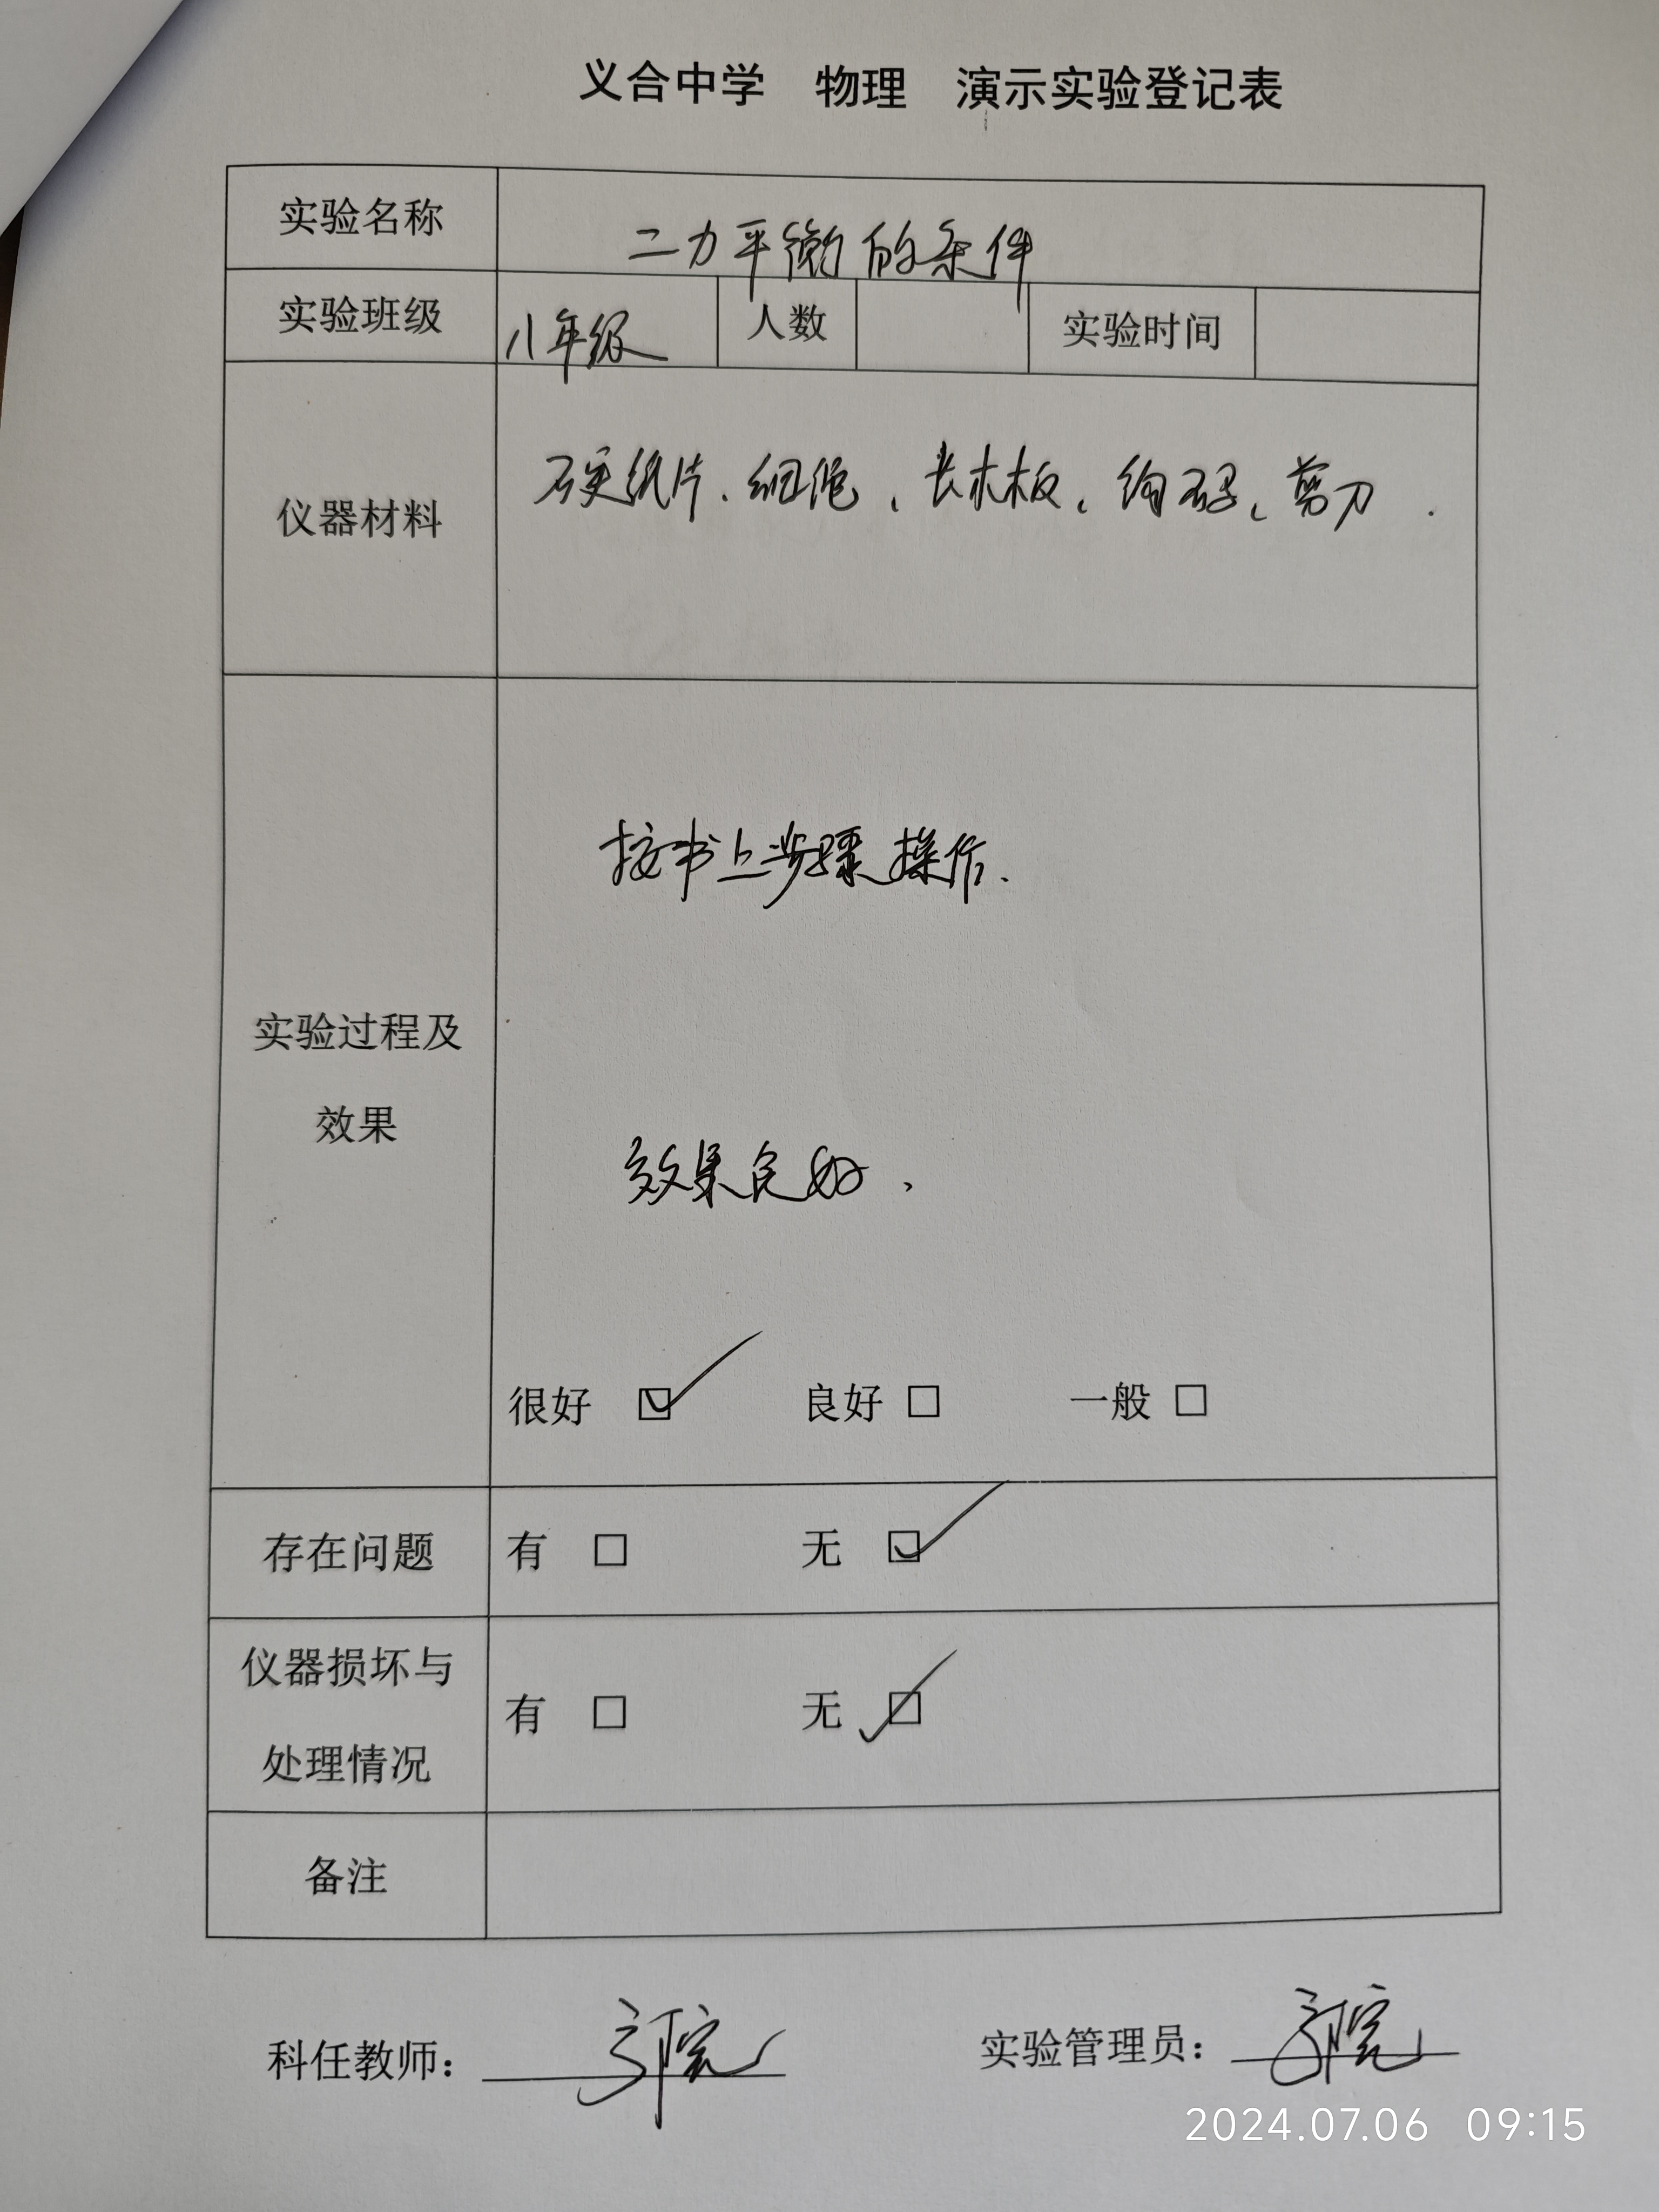 义合中学 物理 演示实验登记表
实验名称 二力平衡的条件
实验班级 八年级 人数 实验时间
仪器材料 硬纸片、细绳、长木板、钩码、剪刀.
按书上步骤操作.
实验过程及
效果
效果良好.
很好 ☑ 良好 □ 一般 □
存在问题 有 □ 无 ☑
仪器损坏与
有 □ 无 ☑
处理情况
备注
科任教师: 实验管理员:
2024.07.06 09:15